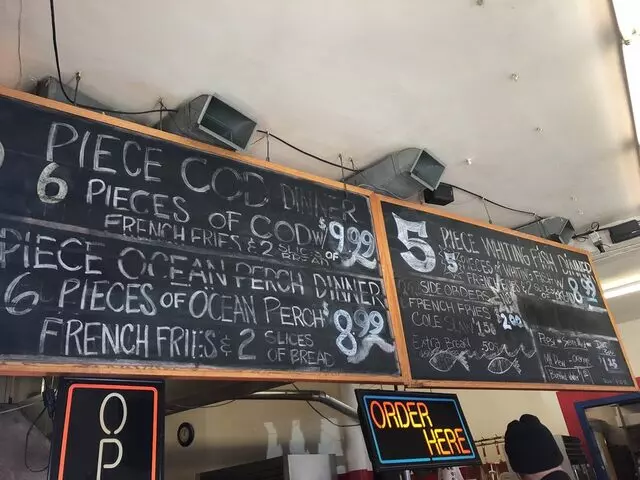 PIECE COD DINNER
6 PIECES OF COD W/
FRENCH FRIES & 2 SLICES OF BREAD
$9.99
PIECE OCEAN PERCH DINNER
6 PIECES OF OCEAN PERCH
FRENCH FRIES & 2 SLICES OF BREAD
$8.99
5 PIECE WHITING FISH DINNER
5 PIECES WHITING FISH
8.99
SIDE ORDERS
FRENCH FRIES $2.00
COLE SLAW 1.50
Extra Bread 50¢
OP
ORDER
HERE